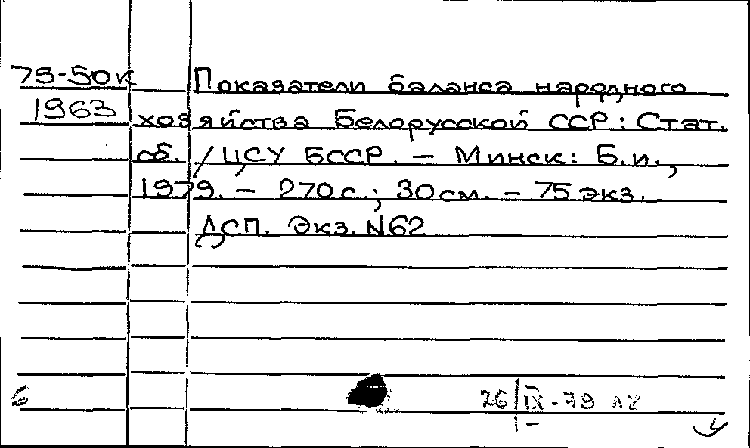 79-50к Показатели баланса народного
1963 хозяйства Белорусской ССР: Стат.
сб. / ЦСУ БССР. – Минск: Б.и.,
1979. – 270 с.; 30 см. – 75 экз.
ДСП. Экз. N62
26/IX-79